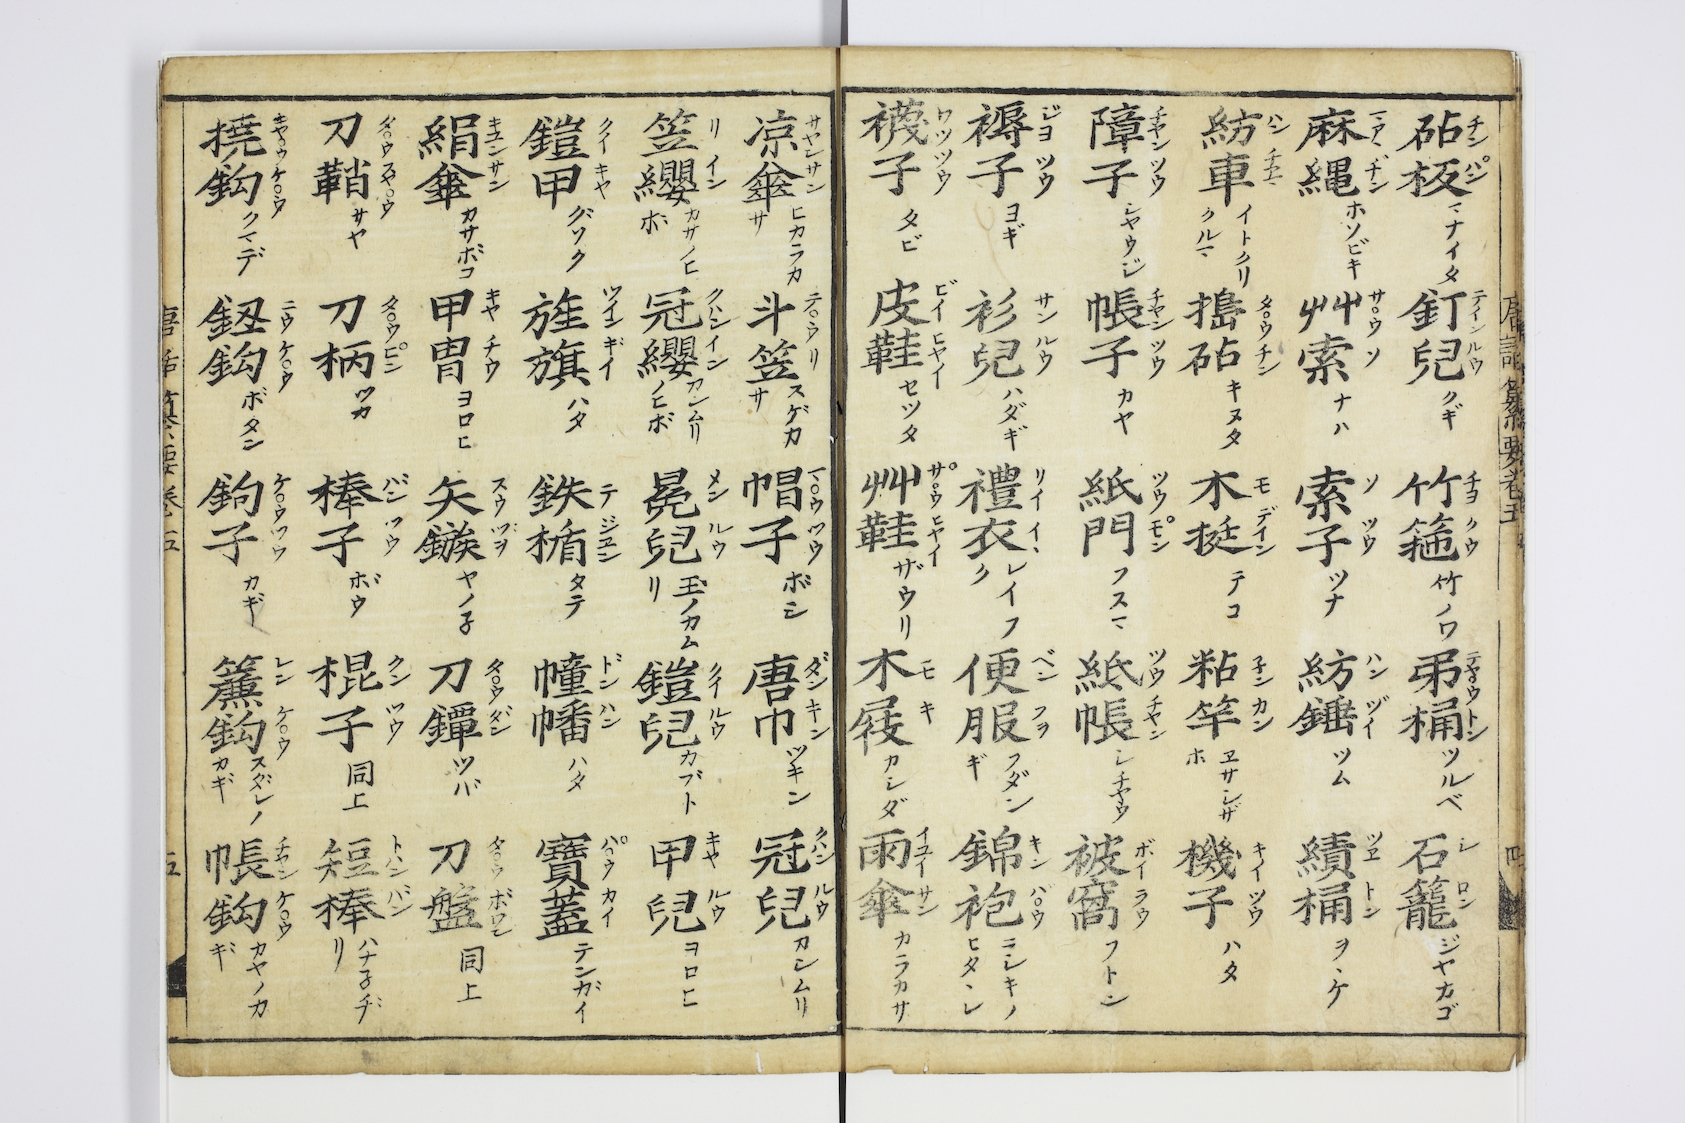 砧板 チンパン マナイタ 釘兒 テインルウ クギ 竹箍 チヨクウ 竹ノワ 弔桶 テ○ウトン ツルベ 石籠 シロン ジヤカゴ
麻縄 マアヽヂン ホソビキ 艸索 サ○ウソ ナハ 索子 ソツウ ツナ 紡錘 ハンヅイ ツム 績桶 ツヱトン ヲヽケ
紡車 ハンチヱー イトクリクルマ 搗砧 タ○ウチン キヌタ 木挺 モデイン テコ 粘竿 子ンカン ヱサシザホ 機子 キイツウ ハタ
障子 チヤンツウ シヤウジ 帳子 チヤンツウ カヤ 紙門 ツウモン フスマ 紙帳 ツウチヤン シチヤウ 被窩 ボイラウ フトン
褥子 ジヨツウ ヨギ 衫兒 サンルウ ハダギ 禮衣 リイイヽ レイフク 便服 ベンフヲ フダンギ 錦袍 キンパ○ウ ニシキノヒタヽレ
襪子 ワツツウ タビ 皮鞋 ビイヒヤイ セツタ 艸鞋 サ○ウヒヤイ ザウリ 木屐 モキ カシダ 雨傘 イユイサン カラカサ
凉傘 サヤンサン ヒカラカサ 斗笠 テ○ウリ スゲカサ 帽子 マ○ウツウ ボシ 唐巾 ダンキン ツキン 冠兒 クハンルウ カンムリ
笠纓 リイン カサノヒボ 冠纓 クハンイン カンムリノヒボ 冕兒 メンルウ 玉ノカムリ 鎧兒 クイルウ カブト 甲兒 キヤルウ ヨロヒ
鎧甲 クイキヤ グソク 旌旗 ツインギイ ハタ 鉄楯 テジユン タテ 幢幡 ドンハン ハタ 寶蓋 パ○ウカイ テンガイ
絹傘 キユンサン カサボコ 甲冑 キヤチウ ヨロヒ 矢鏃 スウツヲ ヤノ子 刀鐔 タ○ウダン ツバ 刀盤 タ○ウボワン 同上
刀鞘 タ○ウスヤ○ウ サヤ 刀柄 タ○ウピン ツカ 棒子 バンツウ ボウ 棍子 クンツウ 同上 短棒 トハンバン ハナ子ヂリ
撓鈎 キヤ○ウケ○ウ クマデ 釼鈎 ニウケ○ウ ボタン 鉤子 ケ○ウツウ カギ 簾鈎 レンケ○ウ スダレノカギ 帳鈎 チヤンケ○ウ カヤノカギ
唐話纂要巻五
五